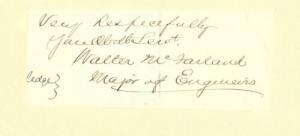 Very Respectfully
Your Obdt Servt.
Walter McFarland
Major of Engineers